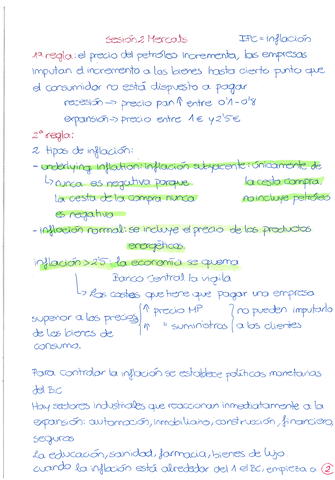 Sesión 2 Mercats IPC = Inflación
1ª regla: el precio del petróleo incrementa, las empresas
imputan el incremento a los bienes hasta cierto punto que
el consumidor no está dispuesto a pagar
recesión → precio pan ↑ entre 0'1-0'8
expansión → precio entre 1€ y 2'5€
2ª regla:
2 tipos de inflación:
- underlying inflation: inflación subyacente: únicamente de
↳ nunca es negativa porque la cesta compra
la cesta de la compra nunca no incluye petróleo
es negativa
- inflación normal: se incluye el precio de los productos
energéticos
inflación > 2'5 la economía se quema
Banco Central la vigila
↳ los costes que tiene que pagar una empresa
superior a los precios ↑ precio MP no pueden imputarlo
de los bienes de ↑ " suministros a los clientes
consumo.
Para controlar la inflación se establece políticas monetarias
del BC
Hay sectores industriales que reaccionan inmediatamente a la
expansión: automoción, inmobiliario, construcción, financiero,
seguros
La educación, sanidad, farmacia, bienes de lujo
cuando la inflación está alrededor del 1 el BC, empieza a 2